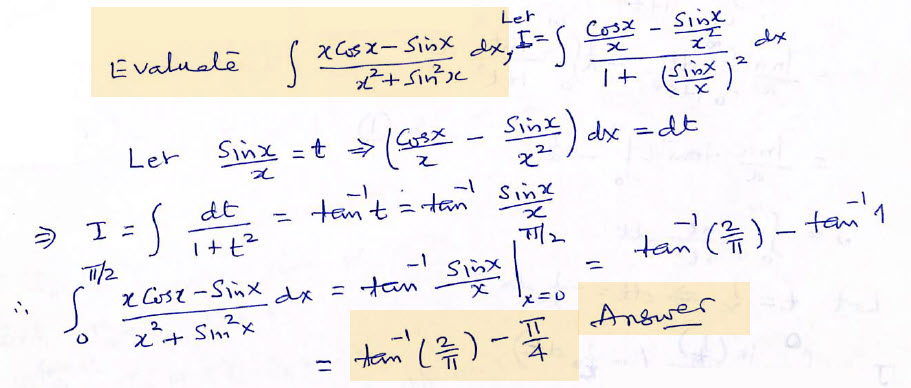 Evaluate ∫ (x Cos x − Sin x)/(x² + Sin²x) dx, Let I = ∫ (Cos x/x − Sin x/x²)/(1 + (Sin x/x)²) dx
Let Sin x/x = t ⇒ (Cos x/x − Sin x/x²) dx = dt
⇒ I = ∫ dt/(1 + t²) = tan⁻¹ t = tan⁻¹ Sin x/x
∴ ∫₀^(π/2) (x Cos x − Sin x)/(x² + Sin²x) dx = tan⁻¹ Sin x/x |_(x=0)^(π/2) = tan⁻¹(2/π) − tan⁻¹ 1
= tan⁻¹(2/π) − π/4 Answer